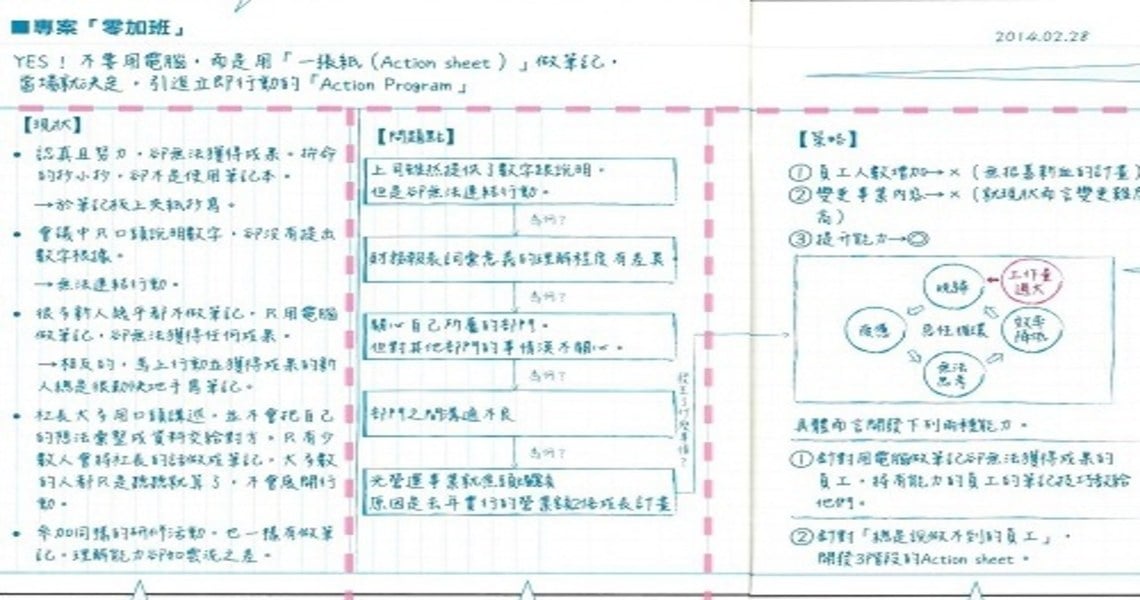 ■專案「零加班」
YES！不要用電腦，而是用「一張紙（Action sheet）」做筆記，
當場就決定，引進立即行動的「Action Program」
2014.02.28
【現狀】
• 認真且努力，卻無法獲得成果。拚命
的抄小抄，卻不是使用筆記本。
→於筆記板上夾紙抄寫。
• 會議中只口頭說明數字，卻沒有提出
數字根據。
→無法連結行動。
• 很多新人幾乎都不做筆記，只用電腦
做筆記，卻無法獲得任何成果。
→相反的，馬上行動並獲得成果的新
人總是很勤快地手寫筆記。
• 社長大多用口頭講述，並不會把自己
的想法彙整成資料交給對方。只有少
數人會將社長的話做成筆記。大多數
的人都只是聽聽就算了，不會展開行
動。
• 參加同樣的研修活動，也一樣有做筆
記，理解能力卻如雲泥之差。
【問題點】
上司雖然提供了數字跟說明，
但是卻無法連結行動。
為何？
財務報表詞彙意義的理解程度有差異
為何？
關心自己所屬的部門，
但對其他部門的事情漠不關心。
為何？
部門之間溝通不良
為何？
光營運事業就焦頭爛額
原因是去年實行的營業額倍成長計畫
發生了什麼事情？
【策略】
①員工人數增加→×（無招募新血的計畫）
②變更事業內容→×（就現狀而言變更難度
高）
③提升能力→◎
工作量
過大
疲憊
惡性循環
效率
降低
無法
思考
具體而言開發下列兩種能力。
①針對用電腦做筆記卻無法獲得成果的
員工，將有能力的員工的筆記技巧教給
他們。
②針對「總是說做不到的員工」，
開發3階段的Action sheet。